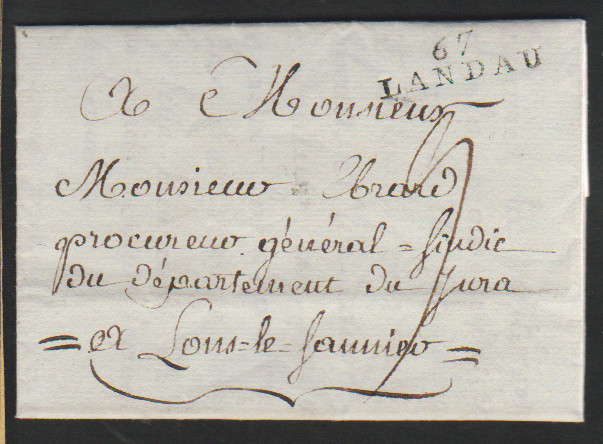 67
LANDAU
A Monsieur
Monsieur Ebrard
procureur général = sindic
du département du Jura
= A Lons-le-Saunier =